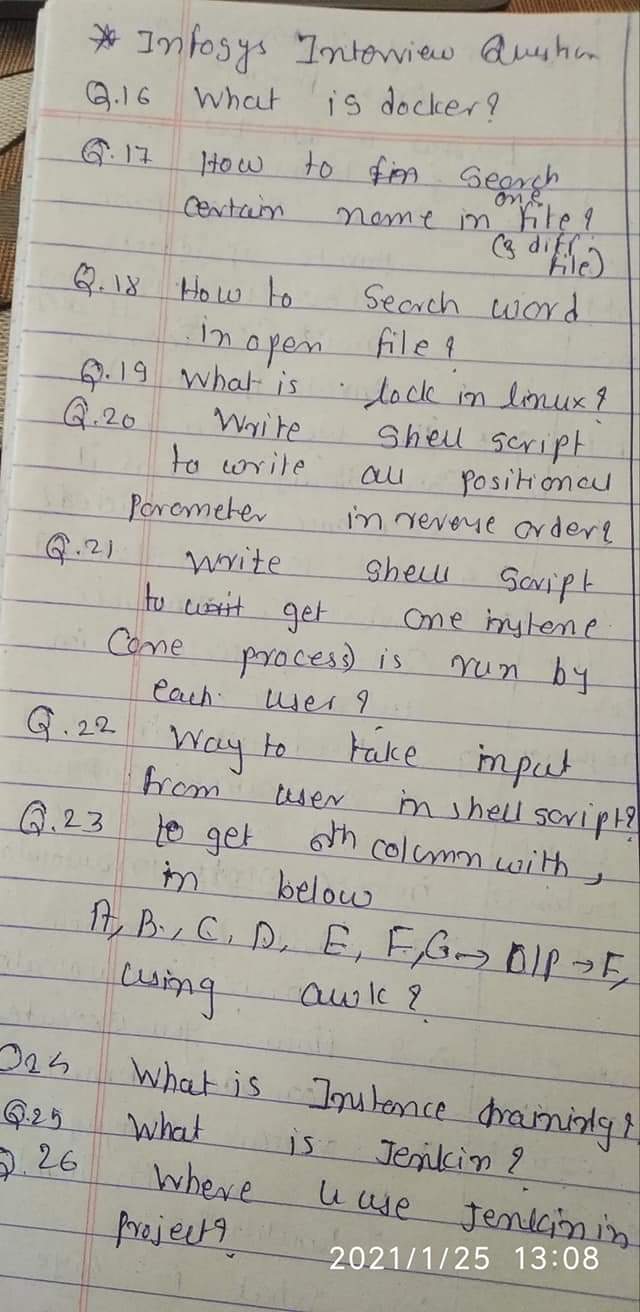 * Infosys Interview Question
Q.16 What is docker?
Q.17 How to fin search
certain name in one file?
(3 diff. file)
Q.18 How to search word
in open file?
Q.19 What is lock in linux?
Q.20 Write shell script
to write all positional
parameter in reverse order?
Q.21 Write shell script
to get one instence
(one process) is run by
each user?
Q.22 Way to take input
from user in shell script?
Q.23 to get 6th column with,
in below
A, B, C, D, E, F, G → O/P → F,
using awk?
What is Instence draining?
Q.25 What is Jenkin?
Q.26 Where u use Jenkin in
project?
2021/1/25 13:08